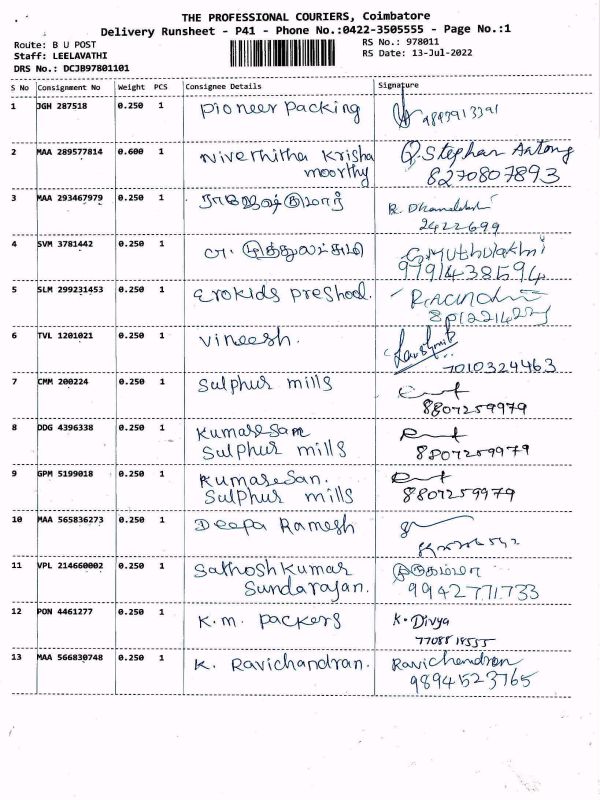 THE PROFESSIONAL COURIERS, Coimbatore
Delivery Runsheet - P41 - Phone No.:0422-3505555 - Page No.:1
Route: B U POST
RS No.: 978011
Staff: LEELAVATHI
RS Date: 13-Jul-2022
DRS No.: DCJB97801101
S No Consignment No Weight PCS Consignee Details Signature
1 JGH 287518 0.250 1 Pioneer Packing
2 MAA 289577814 0.600 1 Nivethitha Krisha Q.Stephan Antony
moorthy 8270807893
3 MAA 293467979 0.250 1 ராஜேஷ்குமார்
2422699
4 SVM 3781442 0.250 1 முத்துலட்சுமி G.Muthulakhi
9791438594
5 SLM 299231453 0.250 1 Erokids preshool.
6 TVL 1201021 0.250 1 Vineesh.
7010324463
7 CMM 200224 0.250 1 Sulphur mills
8807259979
8 DDG 4396338 0.250 1 Kumaresam
Sulphur mills 8807259979
9 GPM 5199018 0.250 1 Kumaresan.
Sulphur mills 8807259979
10 MAA 565836273 0.250 1 Deepa Ramesh
11 VPL 214660002 0.250 1 Sathosh Kumar
Sundarajan. 9942771733
12 PON 4461277 0.250 1 K.m. Packers K. Divya
13 MAA 566830748 0.250 1 K. Ravichandran. Ravichandran
9894523765